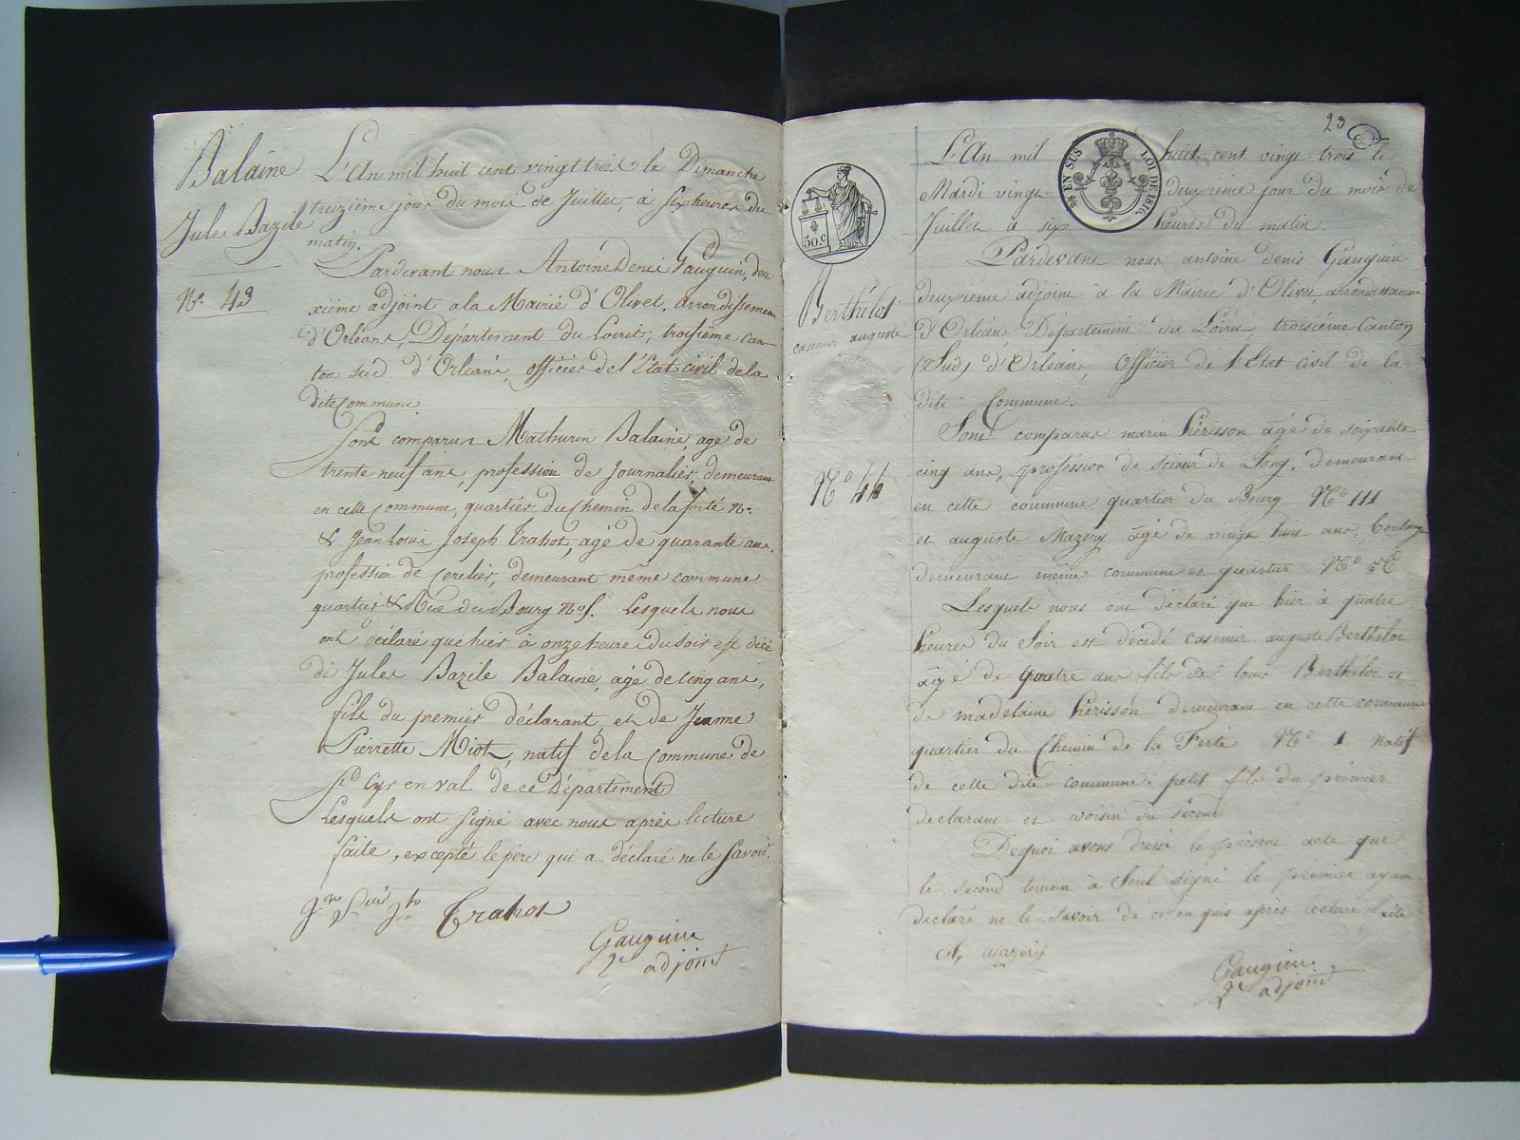 Balaine
Jules Bazile
No. 43
L'An mil huit cent vingt trois le Dimanche
treizième jour du mois de Juillet, à six heures du
matin.
Pardevant nous Antoine Denis Gauguin, deu
xième adjoint a la Mairie d'Olivet, arrondissement
d'Orléans, Département du Loiret, troisième can-
ton sud d'Orléans, officier de l'Etat civil de la
dite Commune.
Sont comparus Mathurin Balaine, age de
trente neuf ans, profession de Journalier, demeurant
en cette Commune, quartier du Chemin de la ferté No.
& Jean Louis Joseph Trahot, agé de quarante ans,
profession de Cordier, demeurant même commune
quartier & Rue du Bourg No. Lesquels nous
ont déclaré que hier à onze heures du soir est décé
dé Jules Bazile Balaine, agé de cinq ans,
fils du premier déclarant et de Jeanne
Pierrette Miot, natif de la Commune de
St. Cyr en val de ce Département
Lesquels ont signé avec nous après lecture
faite, excepté le père qui a déclaré ne le savoir.
Trahot
Gauguin
2e adjoint
23
EN SUS
LOI DE 1816.
50.c
Berthelot
casimir auguste
No 44
L'An mil huit cent vingt trois le
Mardi vingt deuxième jour du mois de
Juillet à sept heures du matin.
Pardevant nous antoine Denis Gauguin
deuxième adjoint à la Mairie d'Olivet, arrondissement
d'Orléans Département du Loiret troisième Canton
(Sud) d'Orléans, Officier de l'Etat Civil de la
dite Commune.
Sont comparus marin hérisson agé de soixante
cinq ans, profession de scieur de Long, demeurant
en cette commune quartier du Bourg No 111
et auguste Mazery agé de vingt huit ans,
demeurant même commune et quartier No
Lesquels nous ont déclaré que hier à quatre
heures du soir est décédé casimir auguste Berthelot
agé de quatre ans fils de louis Berthelot et
de madelaine hérisson demeurant en cette commune
quartier du Chemin de la Ferté No 1 natif
de cette dite commune petit fils du premier
declarant et voisin du second
De quoi avons dressé le présent acte que
le second temoin à seul signé le premier ayant
declaré ne le savoir de ce enquis après lecture faite
A, mazery
Gauguin
2e adjoint